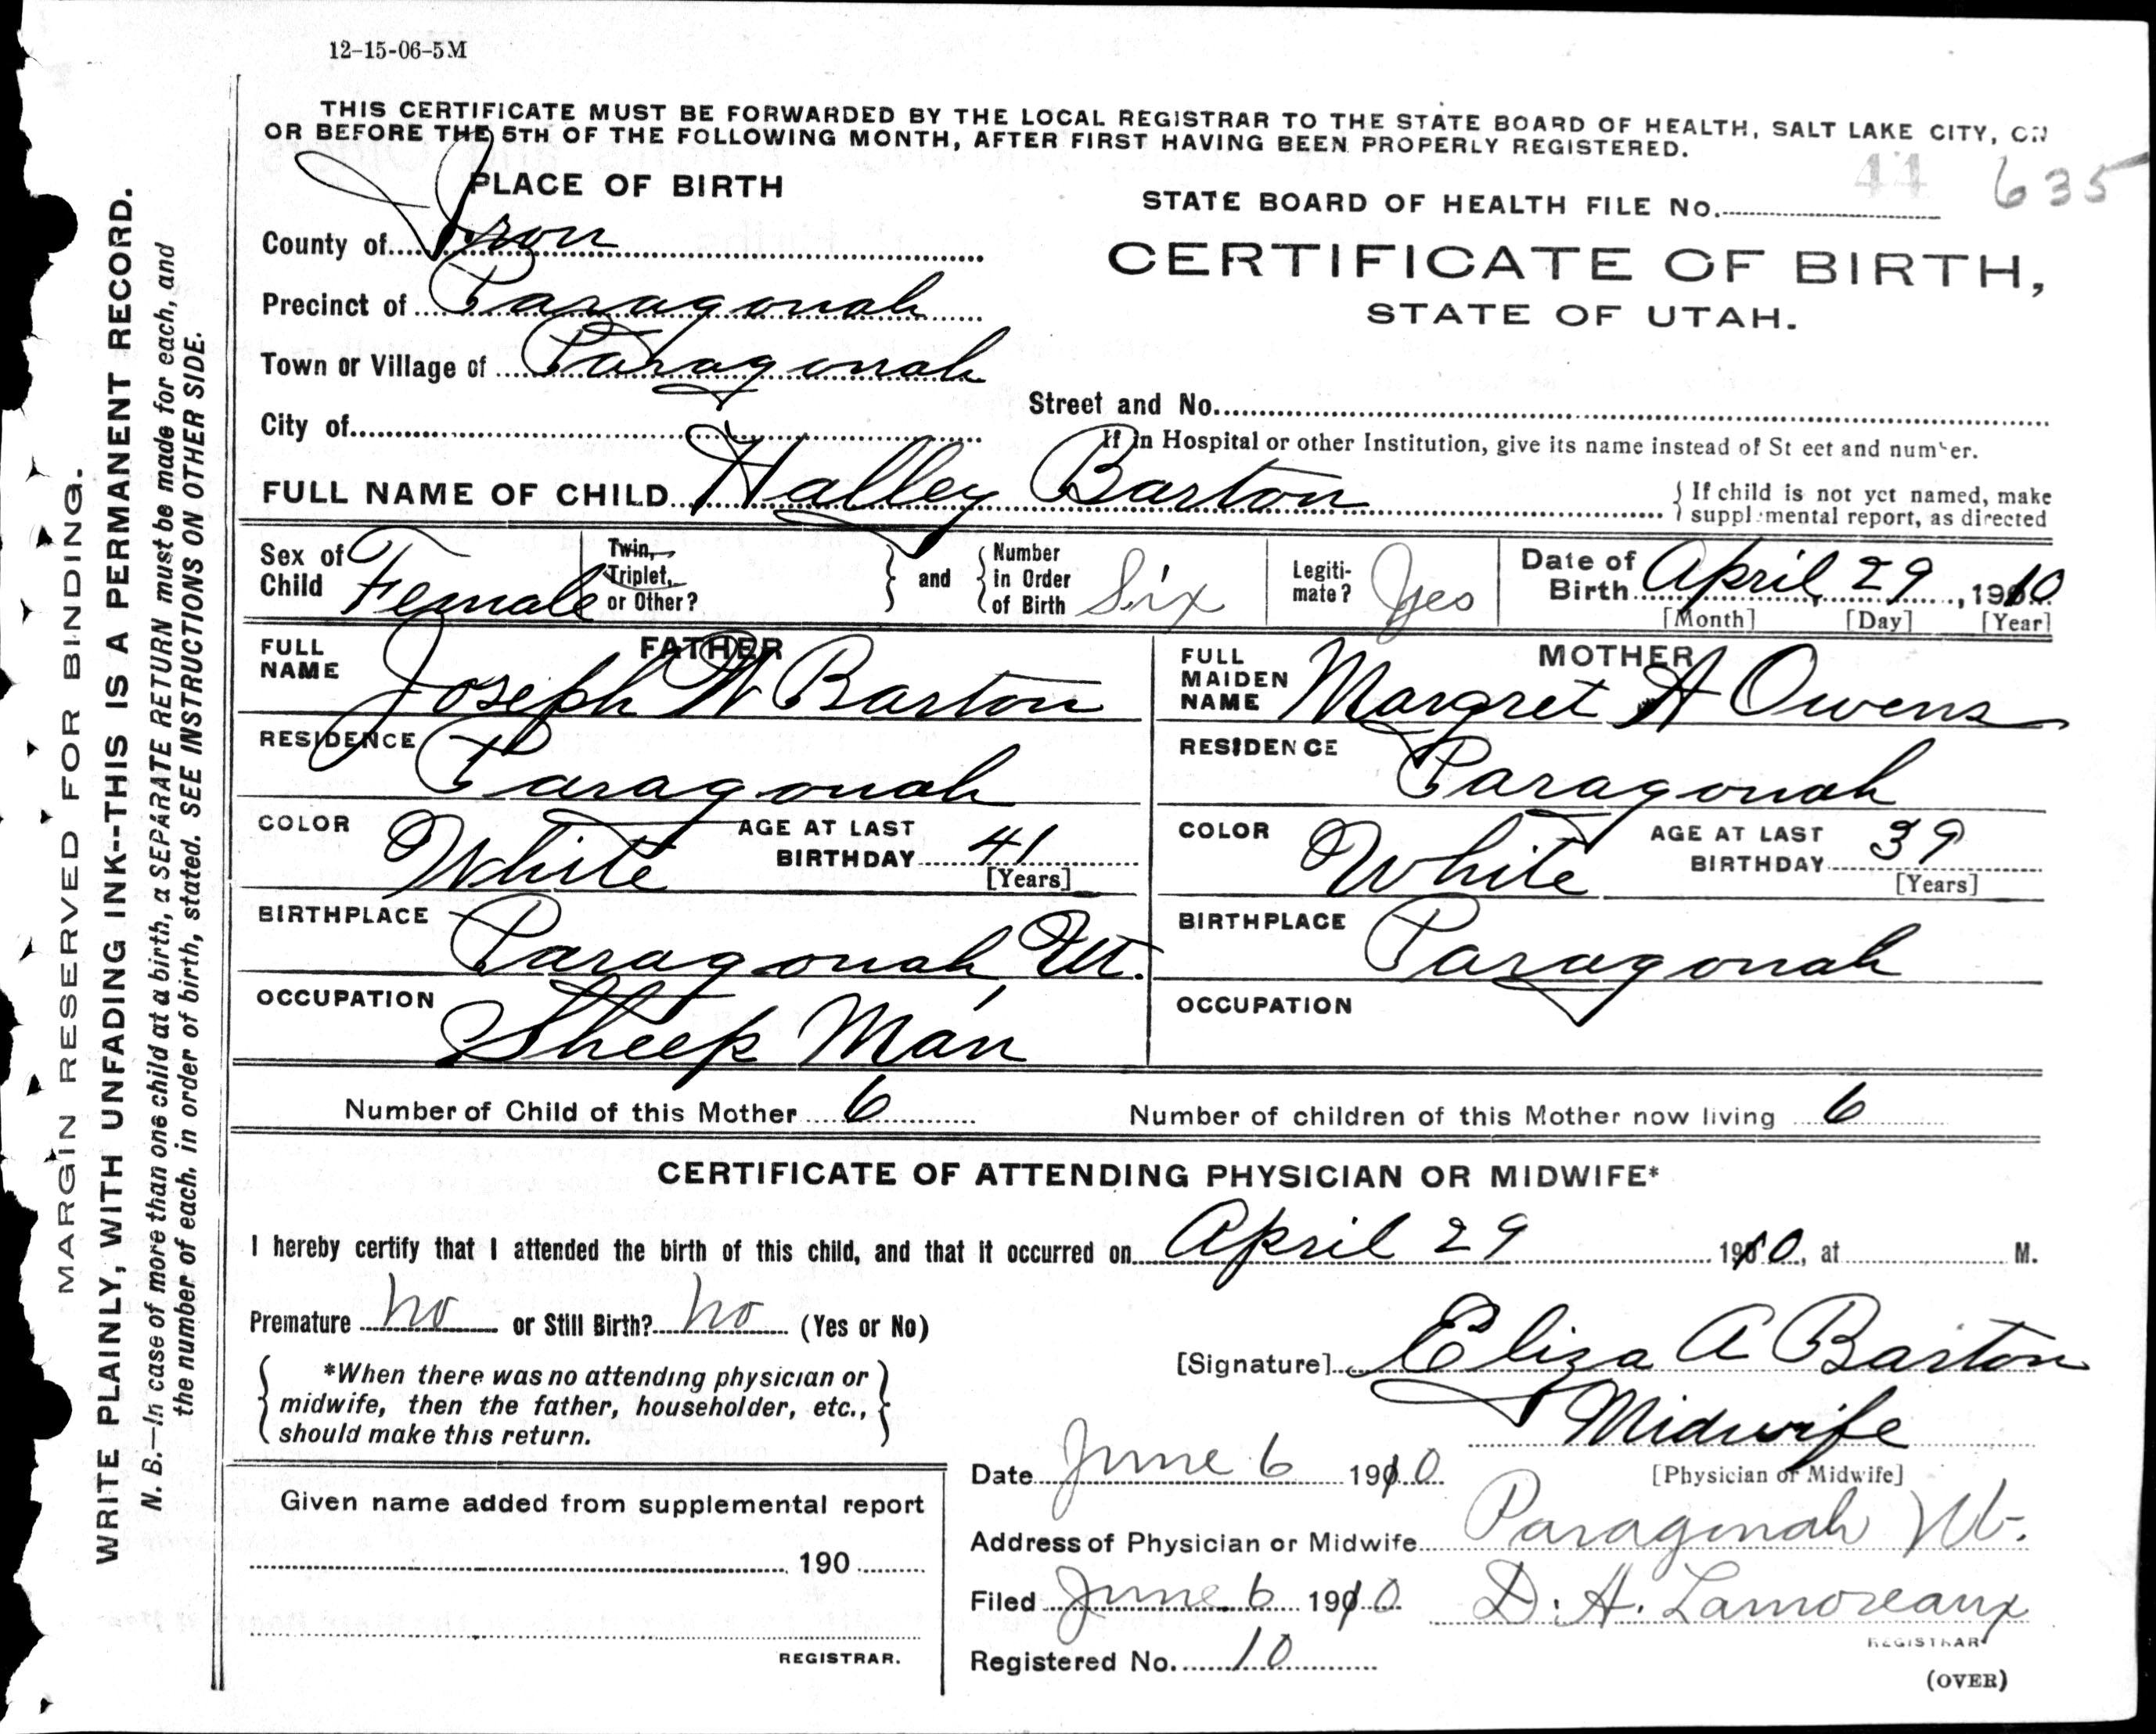 12-15-06-5M
THIS CERTIFICATE MUST BE FORWARDED BY THE LOCAL REGISTRAR TO THE STATE BOARD OF HEALTH, SALT LAKE CITY, ON
OR BEFORE THE 5TH OF THE FOLLOWING MONTH, AFTER FIRST HAVING BEEN PROPERLY REGISTERED.
PLACE OF BIRTH
44 635
STATE BOARD OF HEALTH FILE No.
County of Iron
CERTIFICATE OF BIRTH,
Precinct of Paragonah
STATE OF UTAH.
Town or Village of Paragonah
Street and No.
City of
If in Hospital or other Institution, give its name instead of St eet and number.
FULL NAME OF CHILD Halley Barton
{ If child is not yet named, make
suppl mental report, as directed
Sex of Child Female
Twin, Triplet, or Other?
and
Number in Order of Birth Six
Legiti-mate? Yes
Date of Birth April 29, 1910
[Month] [Day] [Year]
FATHER
FULL NAME Joseph W Barton
RESIDENCE Paragonah
COLOR White
AGE AT LAST BIRTHDAY 41
[Years]
BIRTHPLACE Paragonah, Ut.
OCCUPATION Sheep Man
MOTHER
FULL MAIDEN NAME Margret A Owens
RESIDENCE Paragonah
COLOR White
AGE AT LAST BIRTHDAY 39
[Years]
BIRTHPLACE Paragonah
OCCUPATION
Number of Child of this Mother 6
Number of children of this Mother now living 6
CERTIFICATE OF ATTENDING PHYSICIAN OR MIDWIFE*
I hereby certify that I attended the birth of this child, and that it occurred on April 29 1910, at M.
Premature no or Still Birth? no (Yes or No)
*When there was no attending physician or
midwife, then the father, householder, etc.,
should make this return.
[Signature] Eliza A Barton
Midwife
[Physician or Midwife]
Date June 6 1910
Address of Physician or Midwife Paragonah Ut.
Filed June 6 1910 D. A. Lamoreaux
REGISTRAR
Registered No. 10
(OVER)
Given name added from supplemental report
190
REGISTRAR.
MARGIN RESERVED FOR BINDING.
WRITE PLAINLY, WITH UNFADING INK--THIS IS A PERMANENT RECORD.
N. B.—In case of more than one child at a birth, a SEPARATE RETURN must be made for each, and
the number of each, in order of birth, stated. SEE INSTRUCTIONS ON OTHER SIDE.